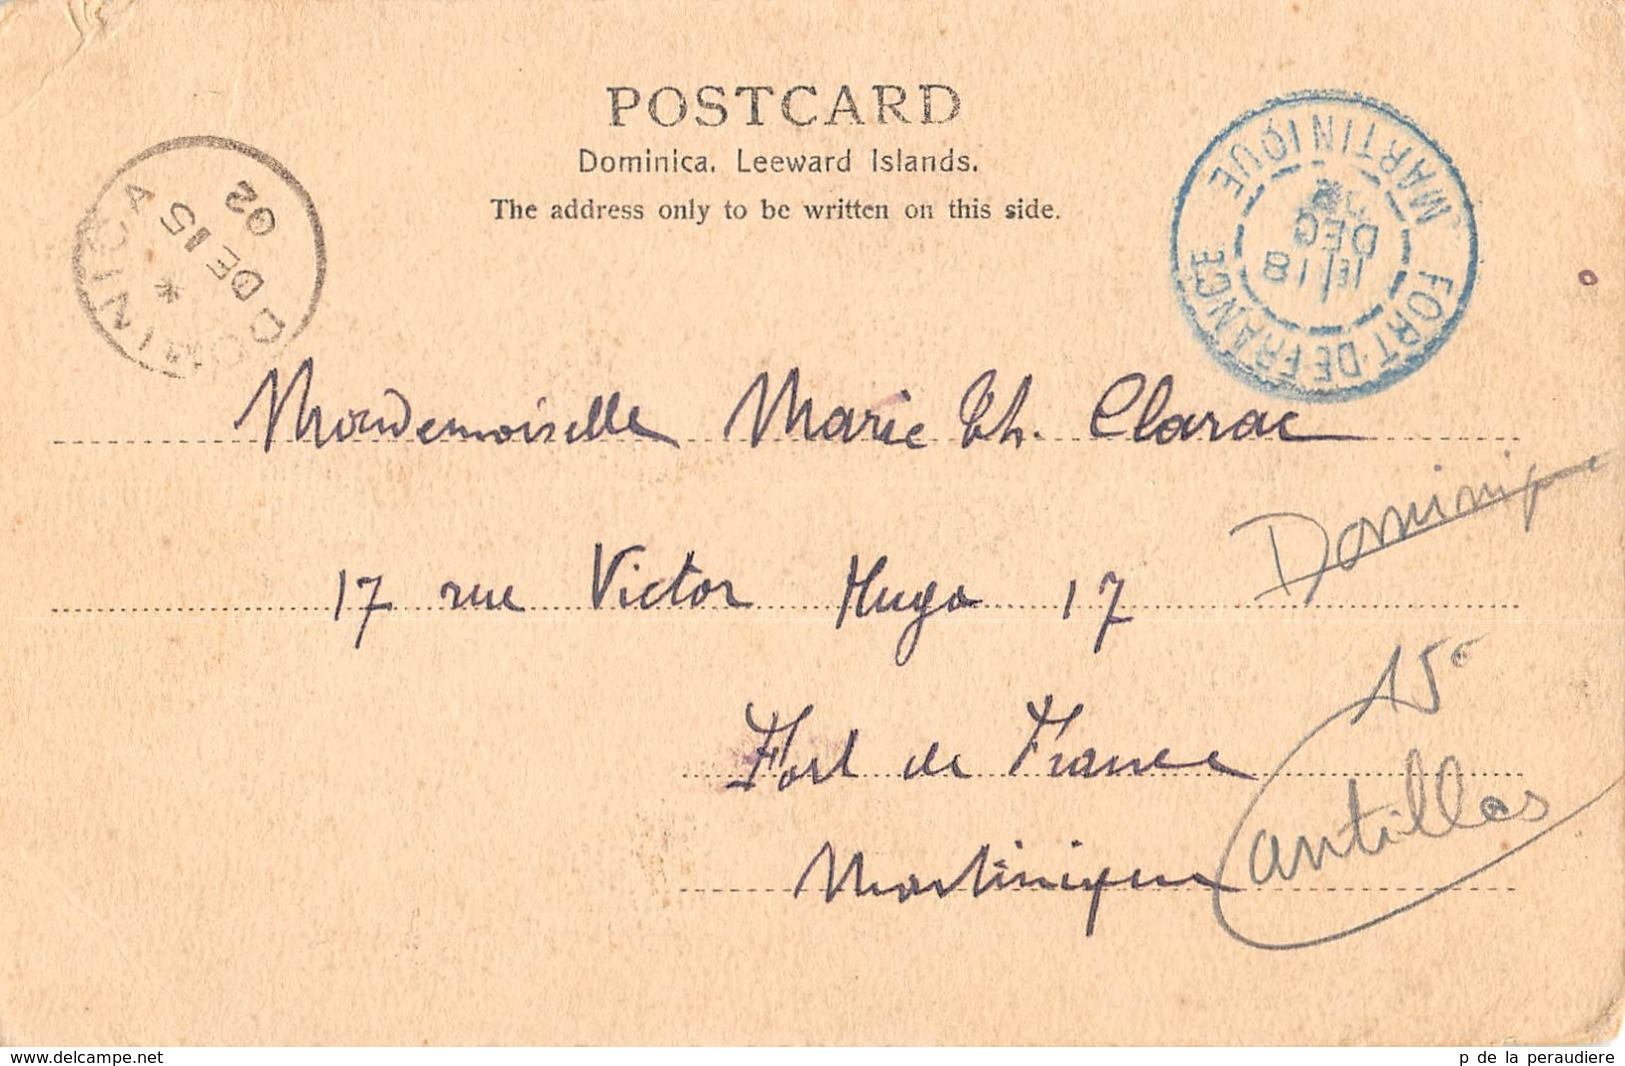 POSTCARD
Dominica. Leeward Islands.
The address only to be written on this side.
DOMINICA
*
DE 15
02
FORT-DE-FRANCE
MARTINIQUE
18
DEC
Mademoiselle Marie Th. Clarac
17 rue Victor Hugo 17
Dominique
Fort de France
15€
Martinique
antilles
www.delcampe.net
p de la peraudiere